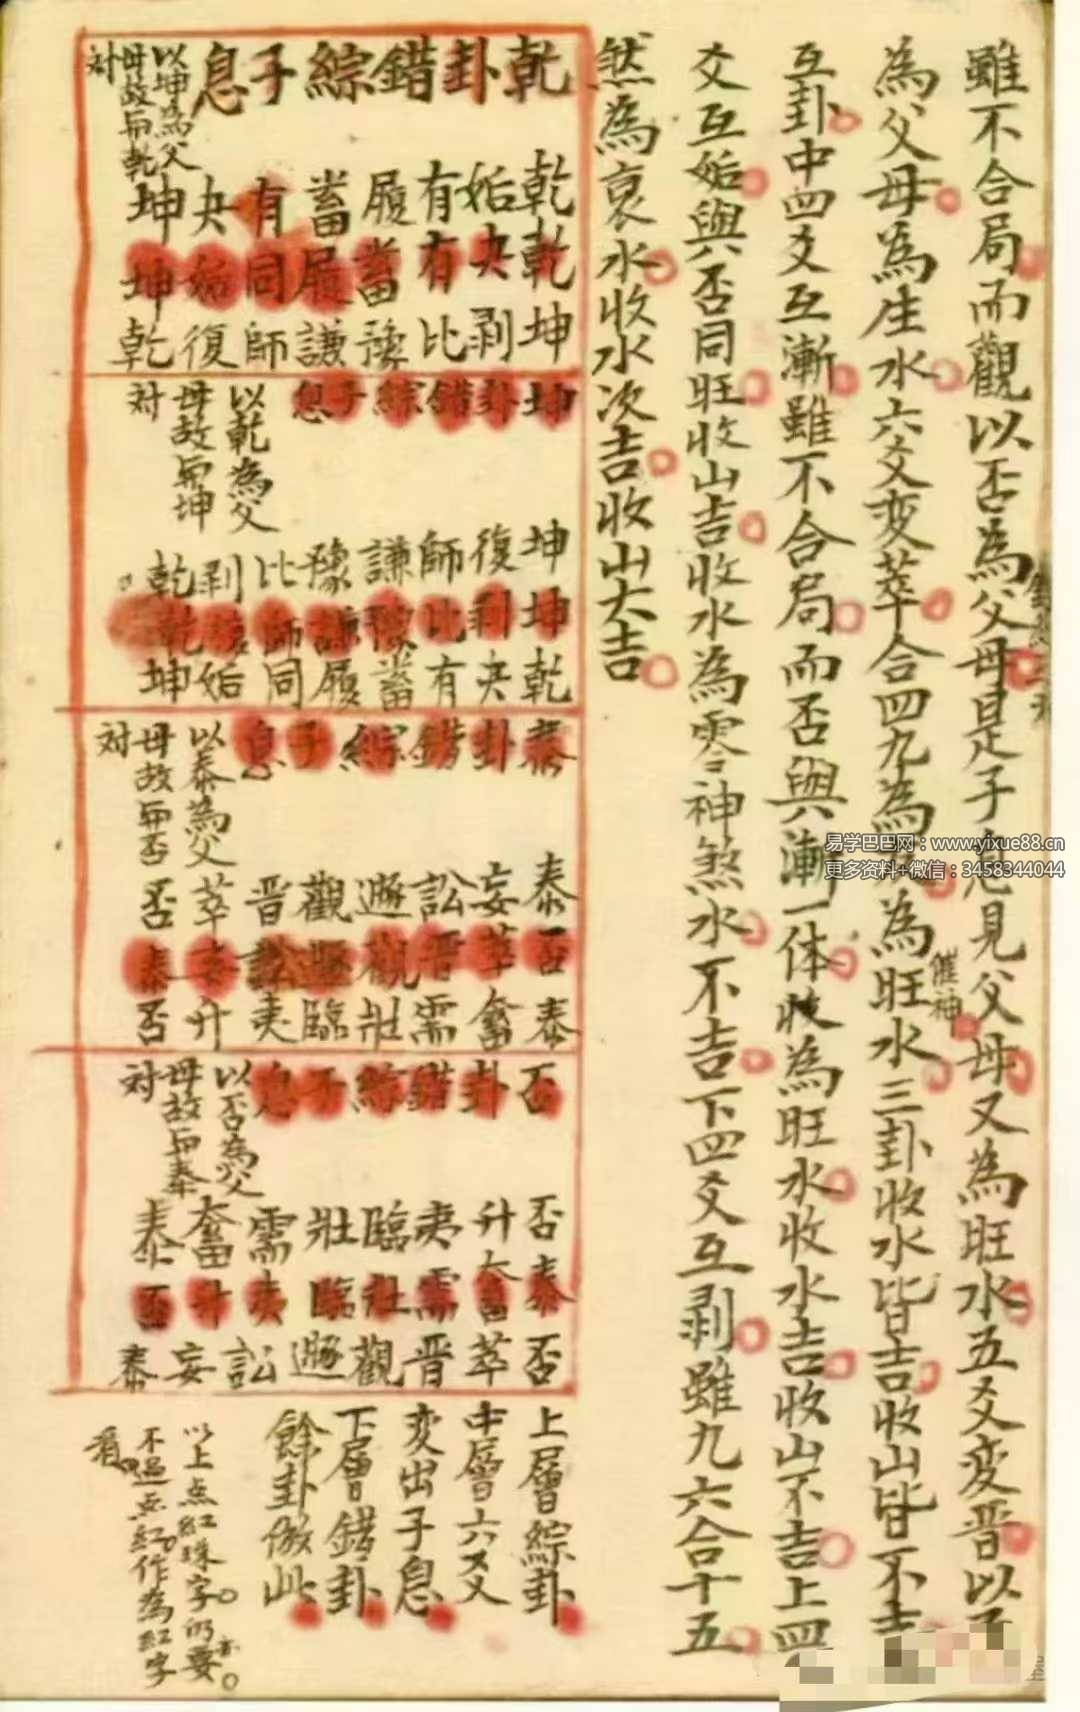 雖不合局而觀以否為父母是子息見父母又為旺水五爻変晋以
為父母為生水六爻変萃合四九為為旺水三卦收水皆吉收山皆不吉
催神
互卦中四爻互漸雖不合局而否與漸一体故為旺水收水吉收山不吉上四
爻互姤與否同旺收山吉收水為零神煞水不吉下四爻互剥雖九六合十五
然為衰水收水次吉收山大吉
乾卦錯綜子息
以坤為父
母故与乾
对
乾姤有履畜有夬坤
乾夬有畜履同姤坤
坤剥比豫謙師復乾
坤卦錯綜子息
以乾為父
母故与坤
对
坤復師謙豫比剥乾
坤剥比豫謙師復乾
乾夬有畜履同姤坤
泰卦錯綜子息
以泰為父
母故与否
对
泰妄訟遯觀晋萃否
否萃晋觀遯訟妄泰
泰畜需壯臨夷升否
否卦錯綜子息
以否為父
母故与泰
对
否升夷臨壯需大畜泰
泰大畜需壯臨夷升否
否萃晋觀遯訟妄泰
上層綜卦
中層六爻
変出子息
下層錯卦
餘卦倣此
以上点紅珠字仍要
不過点紅作為紅字
看
易学巴巴网：www.yixue88.cn
更多资料+微信：3458344044